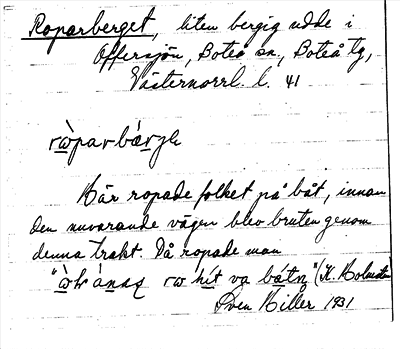 Roparberget, liten bergig udde i
Offersjön, Boteå sn., Boteå tg,
Västernorrl. l. 41
rὼpar bárjẹ
Här ropade folket på båt, innan
den nuvarande vägen blev bruten genom
denna trakt. Då ropade man
hit va
(K. Holmsten
Sven Hiller 1931